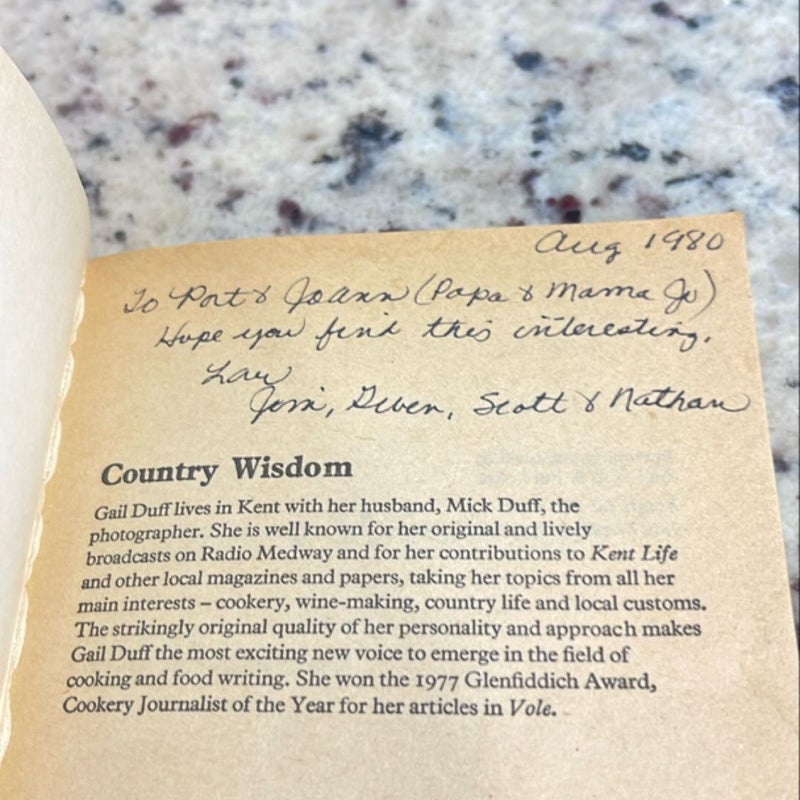 Aug 1980
To Port & Joann (Papa & Mama Jo)
Hope you find this interesting.
Jim, Gwen, Scott & Nathan
Country Wisdom
Gail Duff lives in Kent with her husband, Mick Duff, the
photographer. She is well known for her original and lively
broadcasts on Radio Medway and for her contributions to Kent Life
and other local magazines and papers, taking her topics from all her
main interests – cookery, wine-making, country life and local customs.
The strikingly original quality of her personality and approach makes
Gail Duff the most exciting new voice to emerge in the field of
cooking and food writing. She won the 1977 Glenfiddich Award,
Cookery Journalist of the Year for her articles in Vole.